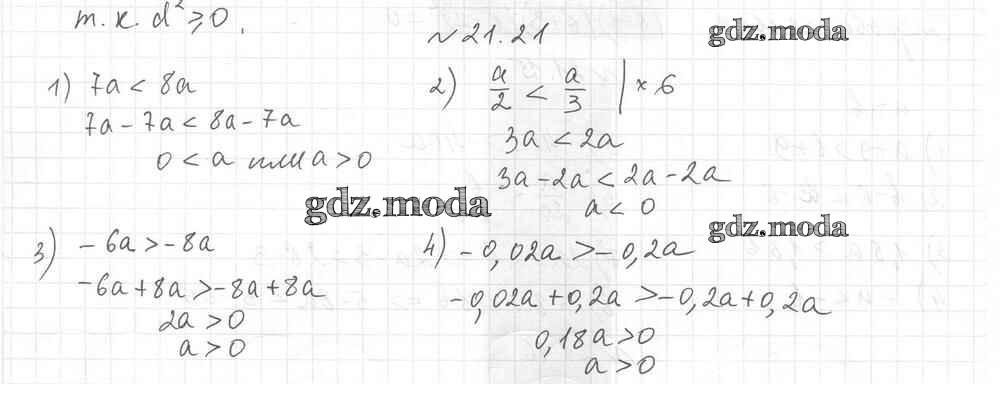 т. к. d² ⩾ 0.
№ 21.21
gdz.moda
1) 7a < 8a
7a - 7a < 8a - 7a
0 < a или a > 0
2) a/2 < a/3 | × 6
3a < 2a
3a - 2a < 2a - 2a
a < 0
gdz.moda
gdz.moda
3) - 6a > - 8a
- 6a + 8a > - 8a + 8a
2a > 0
a > 0
4) - 0,02a > - 0,2a
- 0,02a + 0,2a > - 0,2a + 0,2a
0,18a > 0
a > 0